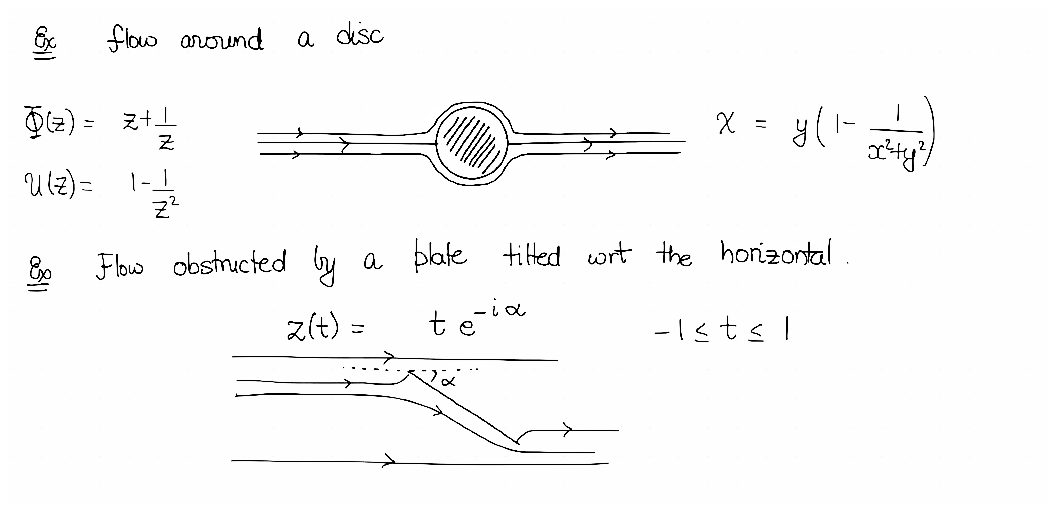 Ex flow around a disc
Φ(z) = z + 1/z
χ = y(1 - 1/(x²+y²))
U(z) = 1 - 1/z²
Ex Flow obstructed by a plate tilted wrt the horizontal.
z(t) = t e^{-iα} -1 ≤ t ≤ 1
α